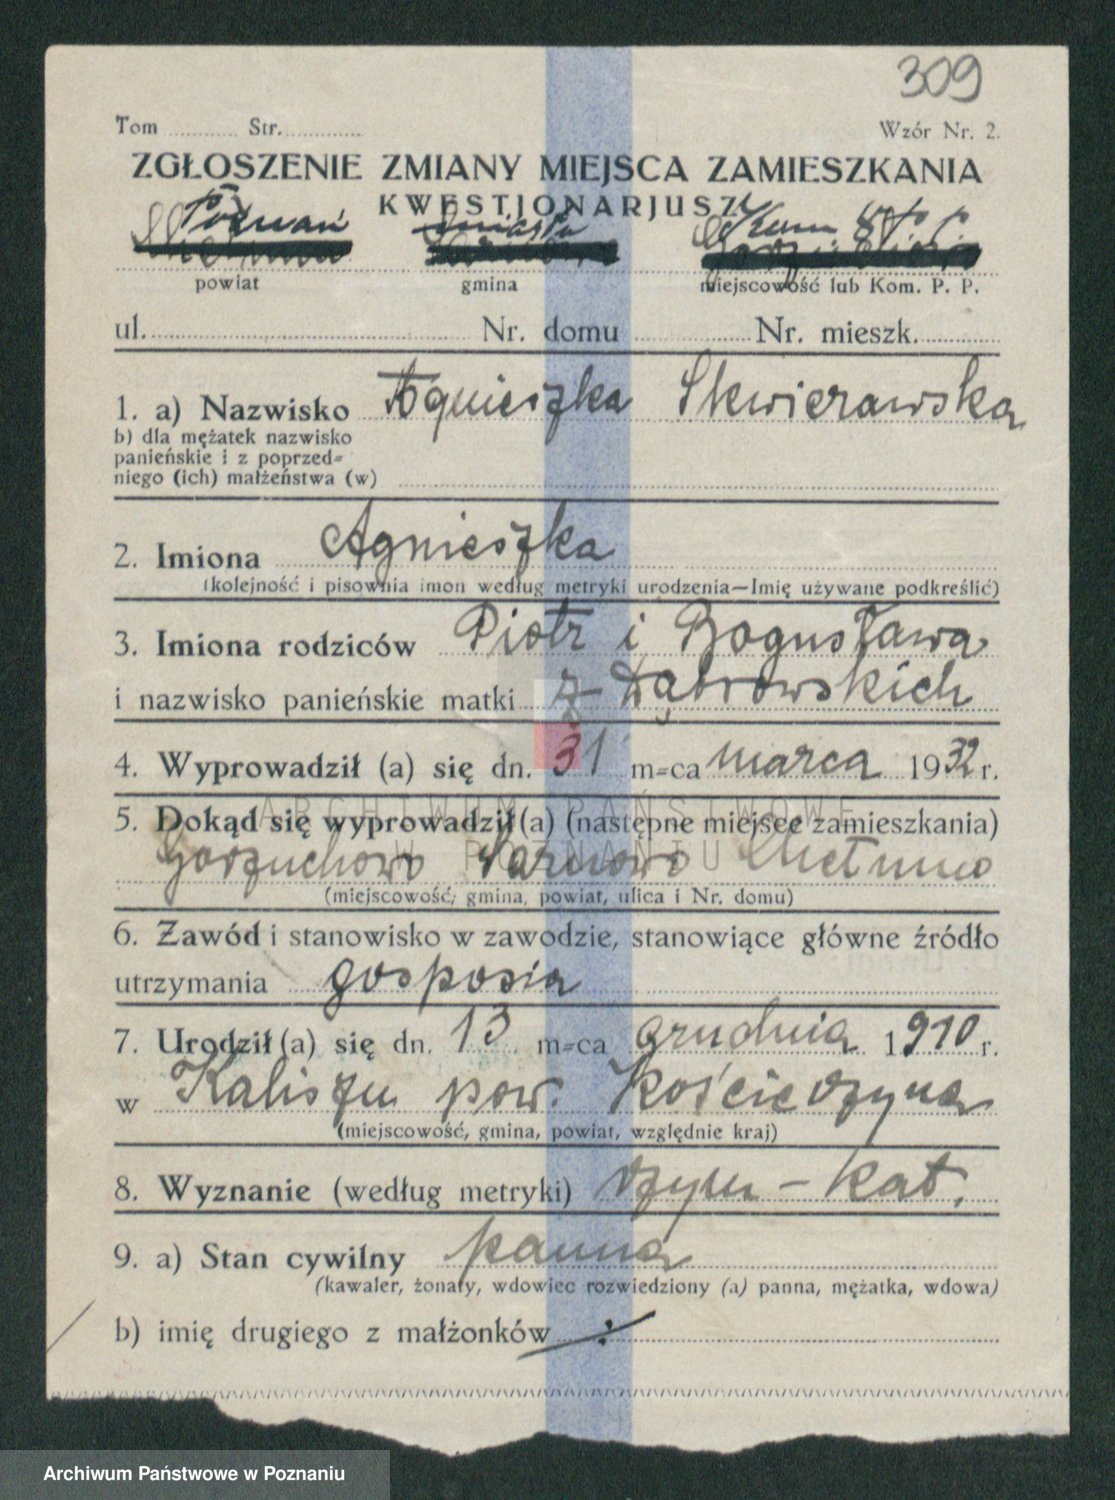 309
Tom ........... Str. ............
Wzór Nr. 2.
ZGŁOSZENIE ZMIANY MIEJSCA ZAMIESZKANIA
KWESTJONARJUSZ
Poznań miasto
powiat gmina miejscowość lub Kom. P. P.
ul. Nr. domu Nr. mieszk.
1. a) Nazwisko Agnieszka Skwierawska
b) dla mężatek nazwisko
panieńskie i z poprzed=
niego (ich) małżeństwa (w)
2. Imiona Agnieszka
(kolejność i pisownia imon według metryki urodzenia—Imię używane podkreślić)
3. Imiona rodziców Piotr i Bogusława
i nazwisko panieńskie matki z Dąbrowskich
4. Wyprowadził (a) się dn. 31 m=ca marca 1932 r.
ARCHIWUM PAŃSTWOWE
5. Dokąd się wyprowadził (a) (następne miejsce zamieszkania)
W POZNANIU
Gorzuchowo Sarnowo Chełmno
(miejscowość, gmina, powiat, ulica i Nr. domu)
6. Zawód i stanowisko w zawodzie, stanowiące główne źródło
utrzymania gosposia
7. Urodził (a) się dn. 13 m=ca grudnia 1910 r.
w Kaliszu pow. Kościerzyna
(miejscowość, gmina, powiat, względnie kraj)
8. Wyznanie (według metryki) rzym – kat.
9. a) Stan cywilny panna
(kawaler, żonaty, wdowiec rozwiedziony (a) panna, mężatka, wdowa)
b) imię drugiego z małżonków
Archiwum Państwowe w Poznaniu